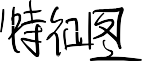 特征图